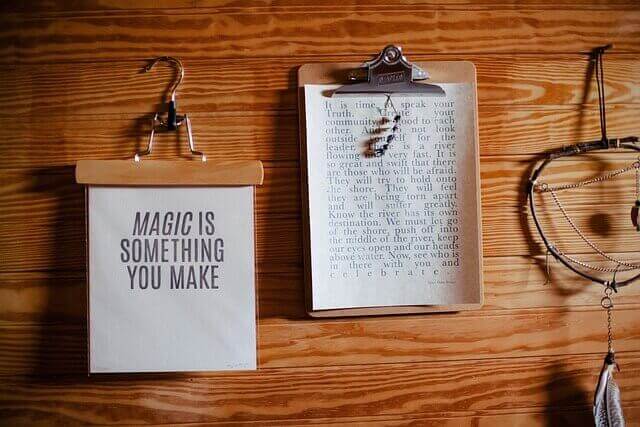 MAGIC IS
SOMETHING
YOU MAKE
It is time to speak your
Truth. Create your
community. good to each
other. not look
outside for the
leader. is a river
flowing very fast. It is
so great and swift that there
are those who will be afraid.
They will try to hold onto
the shore. They will feel
they are being torn apart
and will suffer greatly.
Know the river has its own
destination. We must let go
of the shore, push off into
the middle of the river, keep
our eyes open and our heads
above water. Now, see who is
in there with you and
celebrate.